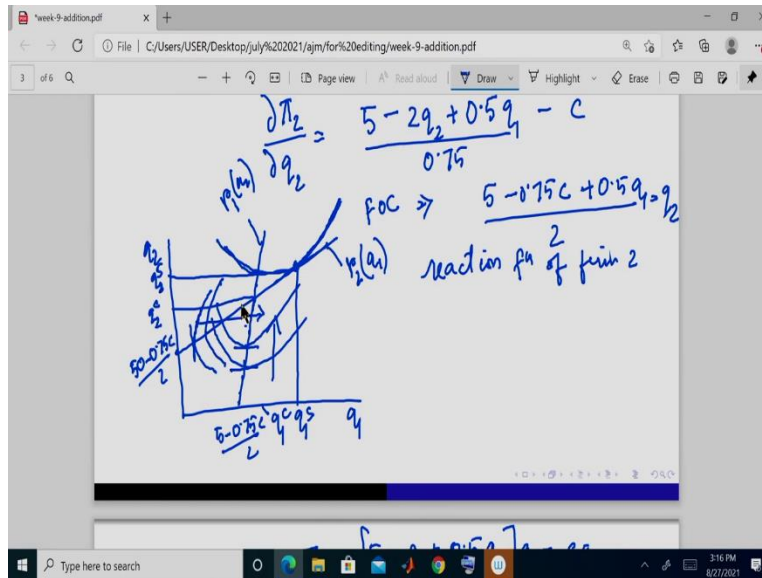 *week-9-addition.pdf
File | C:/Users/USER/Desktop/july%202021/ajm/for%20editing/week-9-addition.pdf
3 of 6
Page view | Read aloud | Draw Highlight Erase
∂π₂/∂q₂ = (5 - 2q₂ + 0.5q₁)/0.75 - C
FOC ⇒ (5 - 0.75C + 0.5q₁)/2 = q₂
reaction fn of firm 2
r₂(q₁)
q₂
q₂ˢ
q₂ᶜ
(50 - 0.75C)/2
(5 - 0.75C)/2 q₁ᶜ q₁ˢ q₁
Type here to search
3:16 PM
8/27/2021